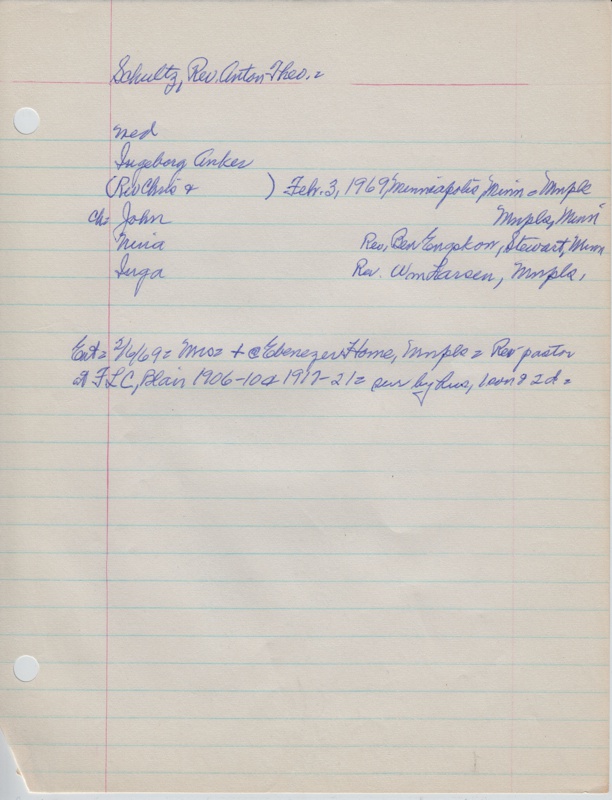 Schultz, Rev. Anton Theo. =
med
Ingeborg Anker
(Rev Chris & ) Feb. 3, 1969 Minneapolis, Minn = Mnpls
ch = John Mnpls, Minn
Nina Rev. Ben Engskow, Stewart, Minn
Inga Rev. Wm Larsen, Mnpls,
Ent = 2/6/69 = Mrs = + @ Ebenezer Home, Mnpls = Rev pastor
at FLC, Blair 1906-10 & 1917-21 = sur by hus, 1 son & 2 d =